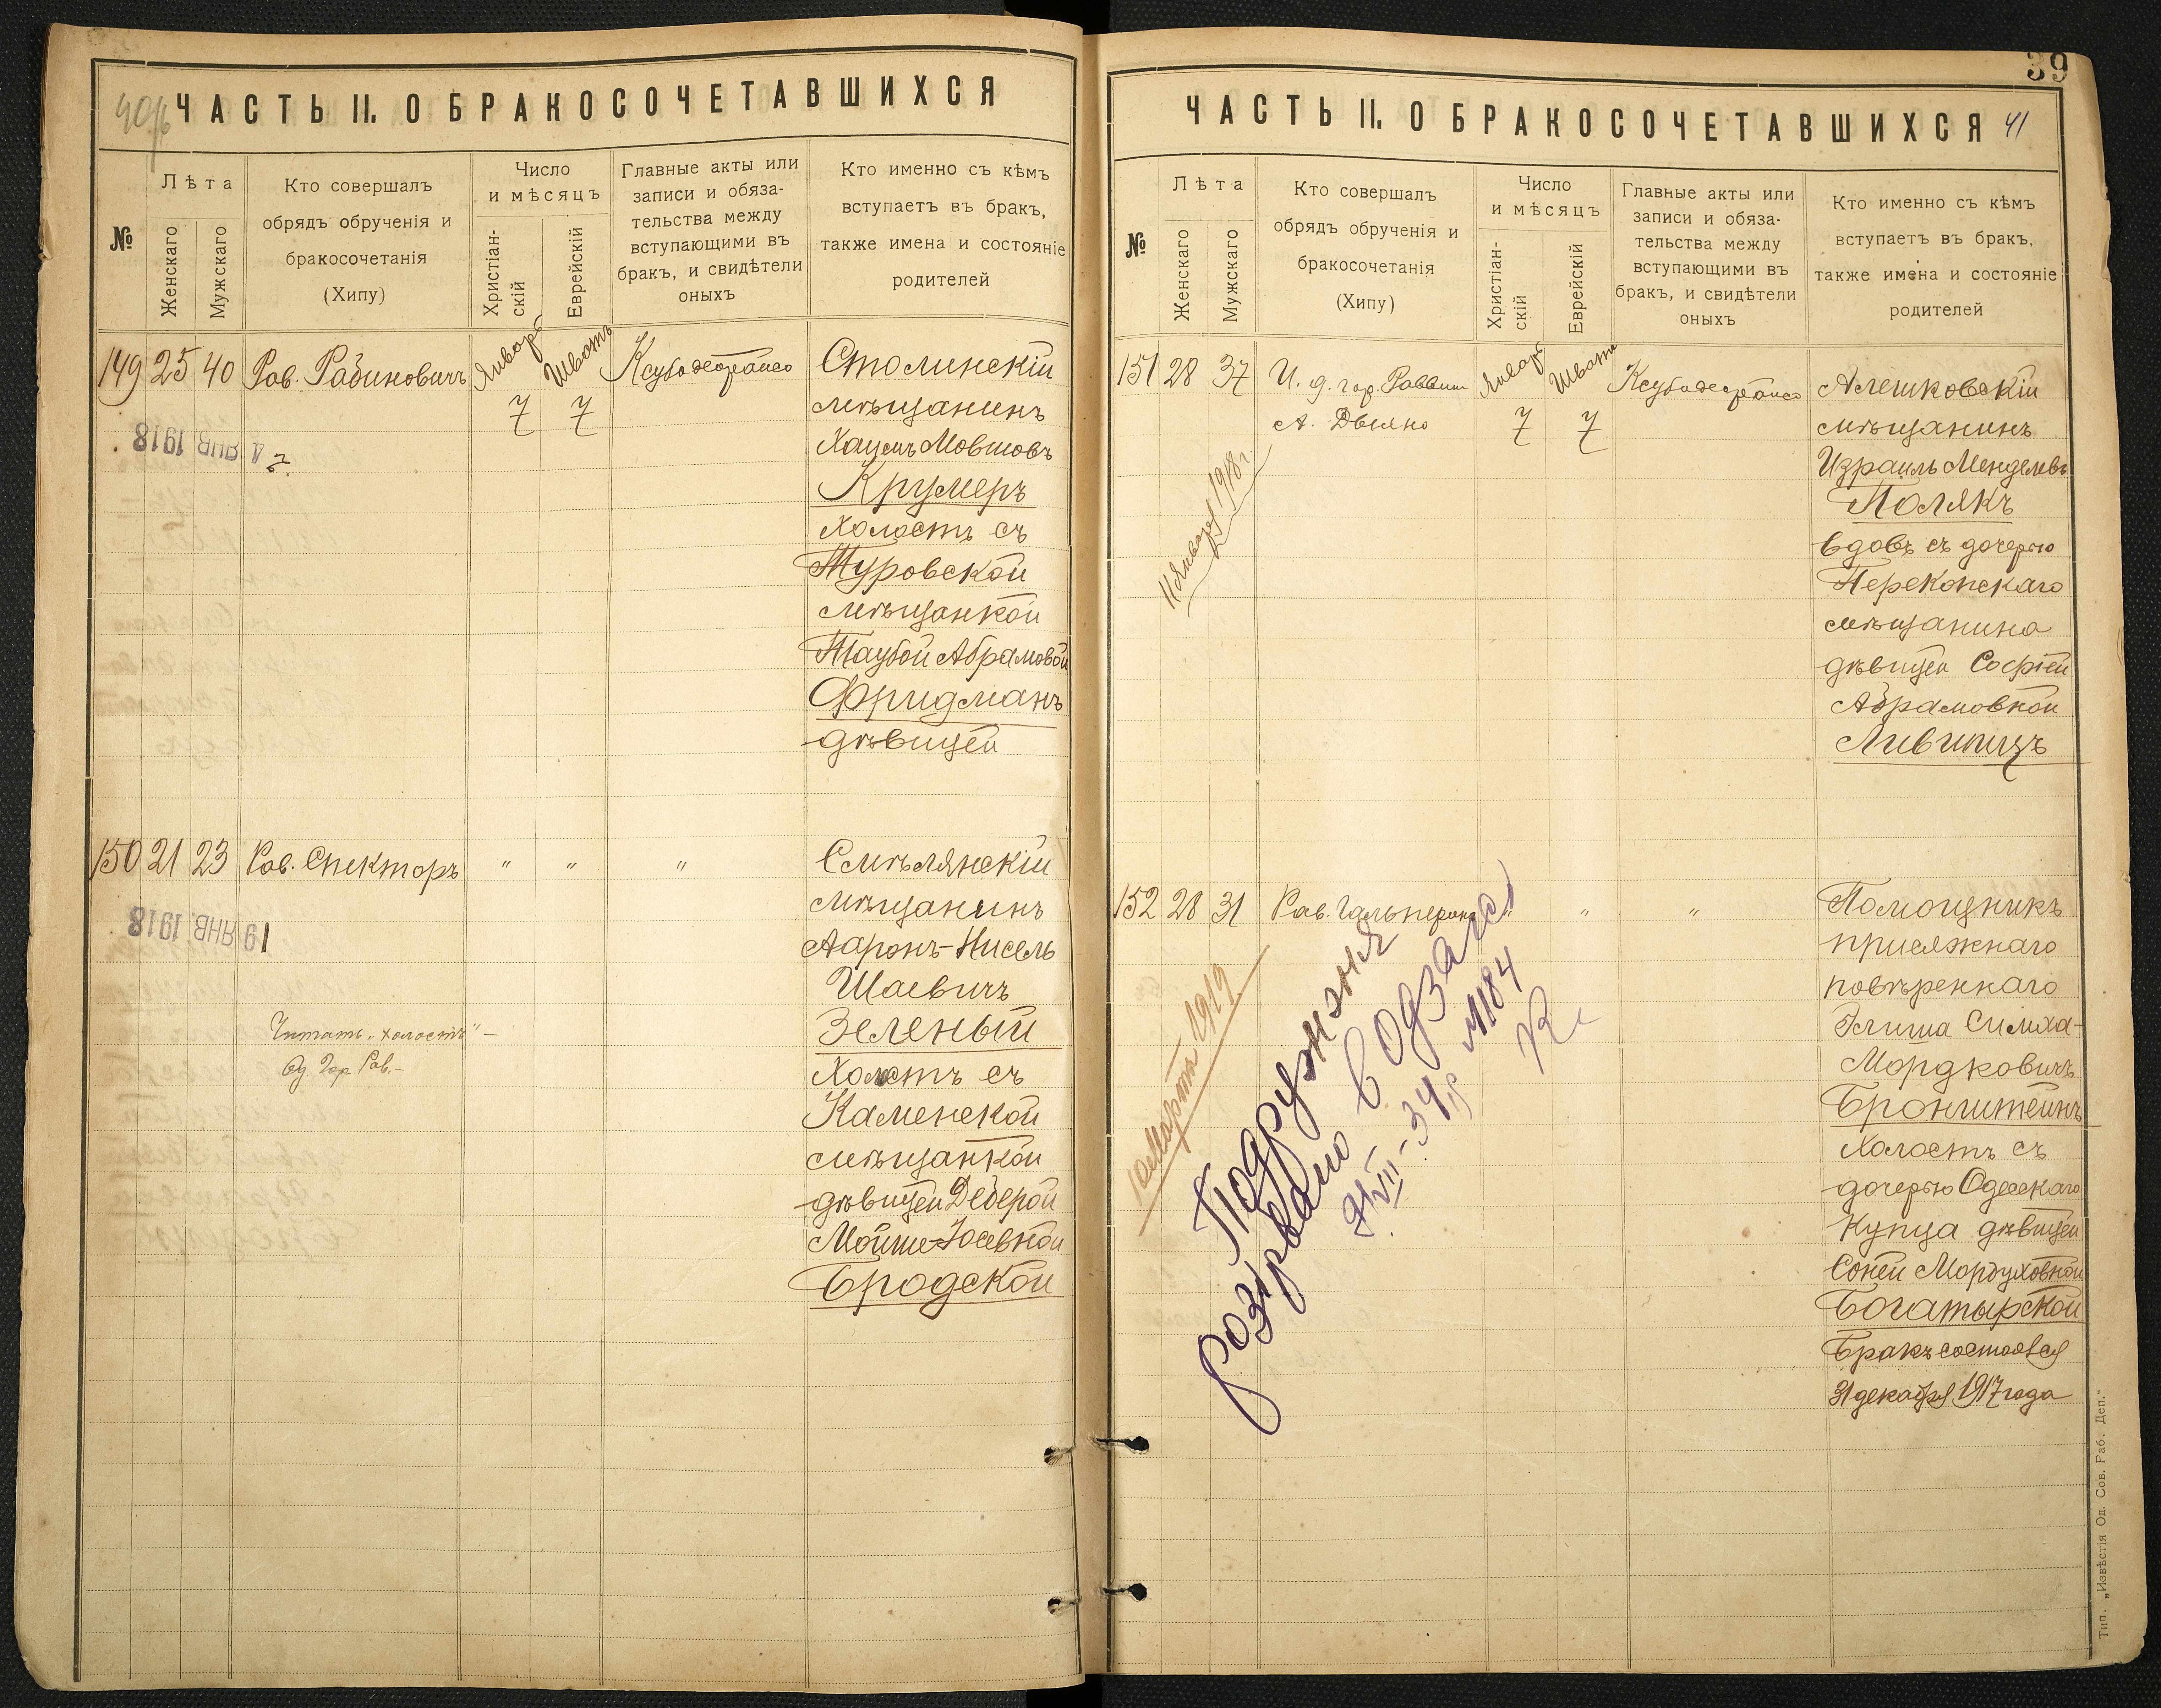 ЧАСТЬ II. О БРАКОСОЧЕТАВШИХСЯ
№
Лѣта
Женскаго
Мужскаго
Кто совершалъ
обрядъ обрученія и
бракосочетанія
(Хипу)
Число
и мѣсяцъ
Христіан-
скій
Еврейскій
Главные акты или
записи и обяза-
тельства между
вступающими въ
бракъ, и свидѣтели
оныхъ
Кто именно съ кѣмъ
вступаетъ въ бракъ,
также имена и состояніе
родителей
149 25 40 Рав. Рабиновичъ Январь Шватъ
7 7
Столинскій
мѣщанинъ
Хаимъ Мовшовъ
Крумеръ
холостъ съ
Туровской
мѣщанкой
Таубой Абрамовой
Фридманъ
дѣвицей
ЯНВ. 1918
150 21 23 Рав. Спекторъ " " "
Смѣлянскій
мѣщанинъ
Ааронъ-Нисель
Шаевичъ
Зеленый
Холостъ съ
Каменской
мѣщанкой
дѣвицей Деберой
Мойше-Іосевной
Бродской
19 ЯНВ. 1918
Читать "холостъ" –
Од. Гор. Рав. –
39
ЧАСТЬ II. О БРАКОСОЧЕТАВШИХСЯ 41
№
Лѣта
Женскаго
Мужскаго
Кто совершалъ
обрядъ обрученія и
бракосочетанія
(Хипу)
Число
и мѣсяцъ
Христіан-
скій
Еврейскій
Главные акты или
записи и обяза-
тельства между
вступающими въ
бракъ, и свидѣтели
оныхъ
Кто именно съ кѣмъ
вступаетъ въ бракъ,
также имена и состояніе
родителей
151 28 37 И. д. гор. Раввин Январь Шватъ
А. 7 7
11 Января 1918 г.
Алешковскій
мѣщанинъ
Израиль Менделевъ
Полякъ
вдовъ съ дочерью
Перекопскаго
мѣщанина
дѣвицей Софіей
Абрамовной
Лившицъ
152 28 31 Рав. Гальперинъ " " "
Помощникъ
присяжнаго
повѣреннаго
Симха-
Мордковичъ
Бронштейнъ
Холостъ съ
дочерью Одесскаго
Купца дѣвицей
Соней Мордуховной
Богатырской
Бракъ состоялся
31 декабря 1917 года
Марта 1919
Подружжя
розірвано в одзагсі
VIII-34 р №1184
Тип. „Извѣстія Од. Сов. Раб. Деп."